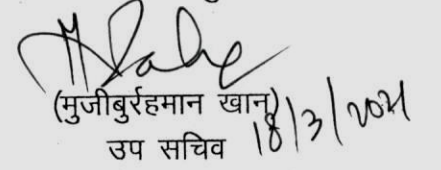 (मुजीबुर्रहमान खान)
उप सचिव 18/3/2021